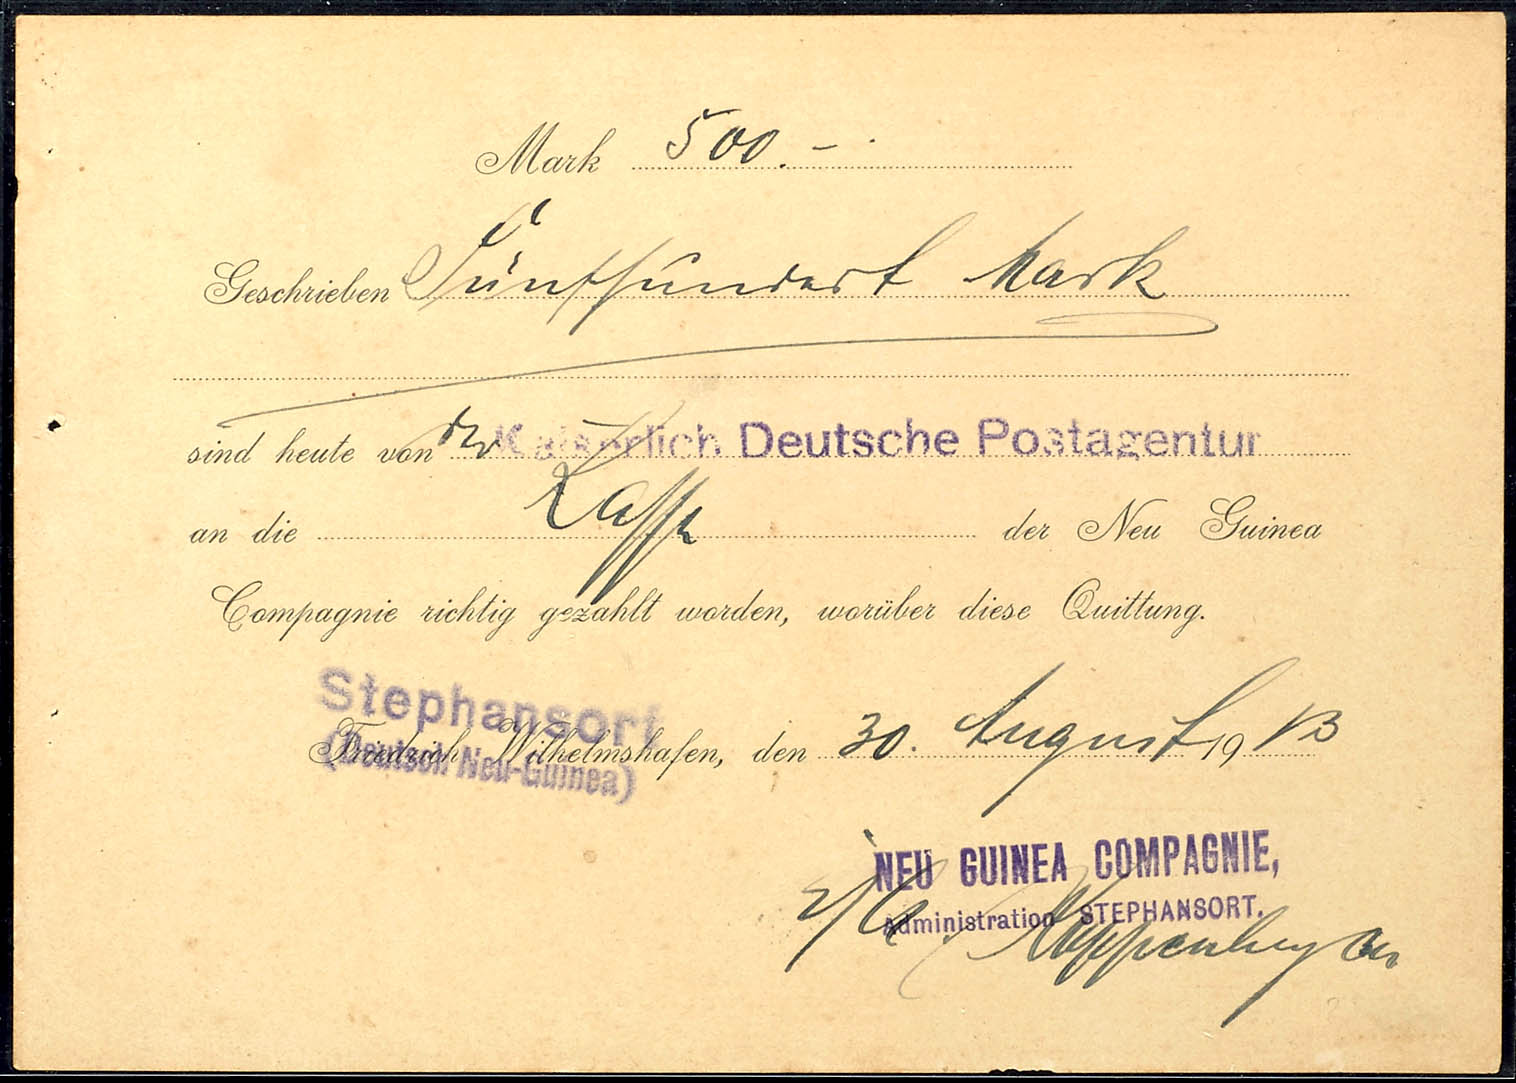 Mark 500.-
Geschrieben Fünfhundert Mark
sind heute von der Kaiserlich Deutsche Postagentur
an die Kasse der Neu Guinea
Compagnie richtig gezahlt worden, worüber diese Quittung.
Stephansort
(Deutsch Neu-Guinea)
Friedrich Wilhelmshafen, den 30. August 1913
NEU GUINEA COMPAGNIE,
Administration STEPHANSORT.